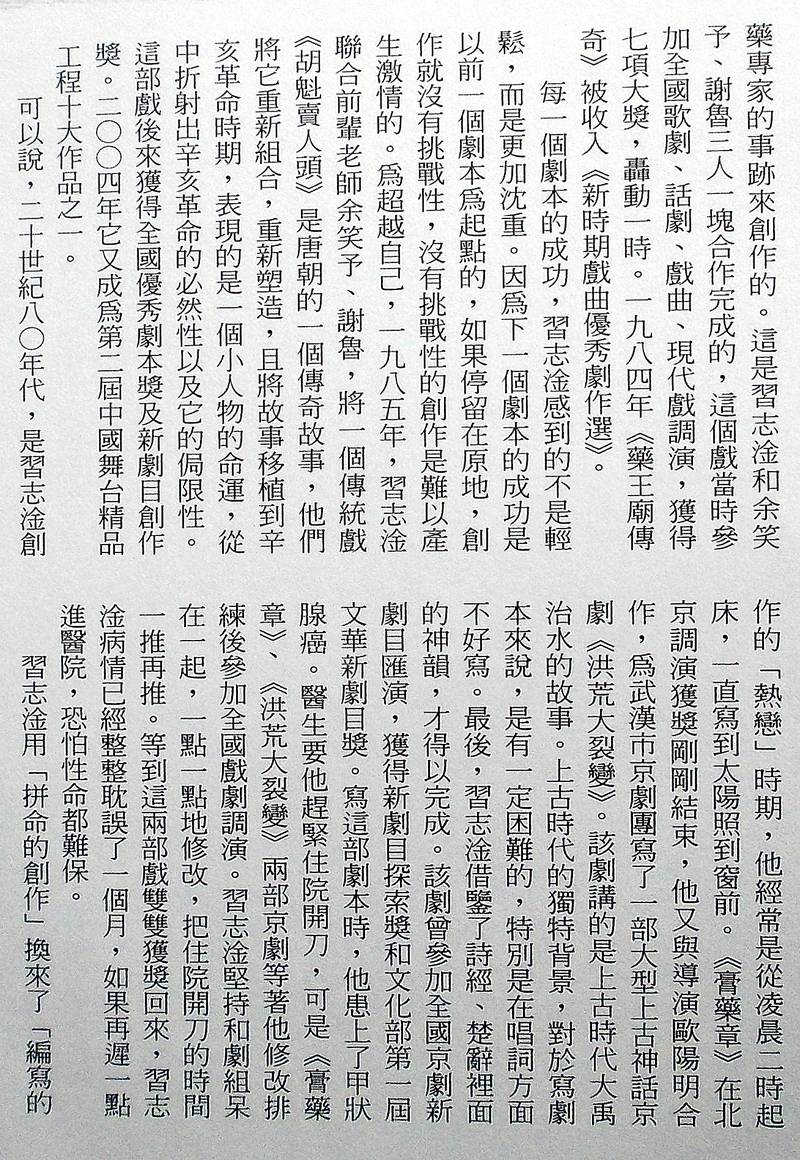 藥專家的事跡來創作的。這是習志淦和余笑
予、謝魯三人一塊合作完成的，這個戲當時參
加全國歌劇、話劇、戲曲、現代戲調演，獲得
七項大獎，轟動一時。一九八四年《藥王廟傳
奇》被收入《新時期戲曲優秀劇作選》。
每一個劇本的成功，習志淦感到的不是輕
鬆，而是更加沈重。因爲下一個劇本的成功是
以前一個劇本爲起點的，如果停留在原地，創
作就沒有挑戰性，沒有挑戰性的創作是難以產
生激情的。爲超越自己，一九八五年，習志淦
聯合前輩老師余笑予、謝魯，將一個傳統戲
《胡魁賣人頭》是唐朝的一個傳奇故事，他們
將它重新組合，重新塑造，且將故事移植到辛
亥革命時期，表現的是一個小人物的命運，從
中折射出辛亥革命的必然性以及它的侷限性。
這部戲後來獲得全國優秀劇本獎及新劇目創作
獎。二〇〇四年它又成爲第二屆中國舞台精品
工程十大作品之一。
可以說，二十世紀八〇年代，是習志淦創
作的「熱戀」時期，他經常是從凌晨二時起
床，一直寫到太陽照到窗前。《膏藥章》在北
京調演獲獎剛剛結束，他又與導演歐陽明合
作，爲武漢市京劇團寫了一部大型上古神話京
劇《洪荒大裂變》。該劇講的是上古時代大禹
治水的故事。上古時代的獨特背景，對於寫劇
本來說，是有一定困難的，特別是在唱詞方面
不好寫。最後，習志淦借鑒了詩經、楚辭裡面
的神韻，才得以完成。該劇曾參加全國京劇新
劇目匯演，獲得新劇目探索獎和文化部第一屆
文華新劇目獎。寫這部劇本時，他患上了甲狀
腺癌。醫生要他趕緊住院開刀，可是《膏藥
章》、《洪荒大裂變》兩部京劇等著他修改排
練後參加全國戲劇調演。習志淦堅持和劇組呆
在一起，一點一點地修改，把住院開刀的時間
一推再推。等到這兩部戲雙雙獲獎回來，習志
淦病情已經整整耽誤了一個月，如果再遲一點
進醫院，恐怕性命都難保。
習志淦用「拼命的創作」換來了「編寫的